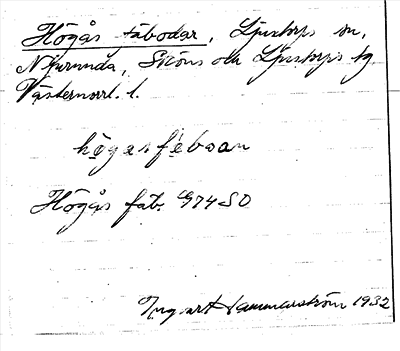 Högås fäbodar, Ljustorps sn,
Njurunda, Sköns och Ljustorps tg
Västernorrl. l.
högasfèboan
Högås fäb. G74SO
Ingvart Hammarström 1932